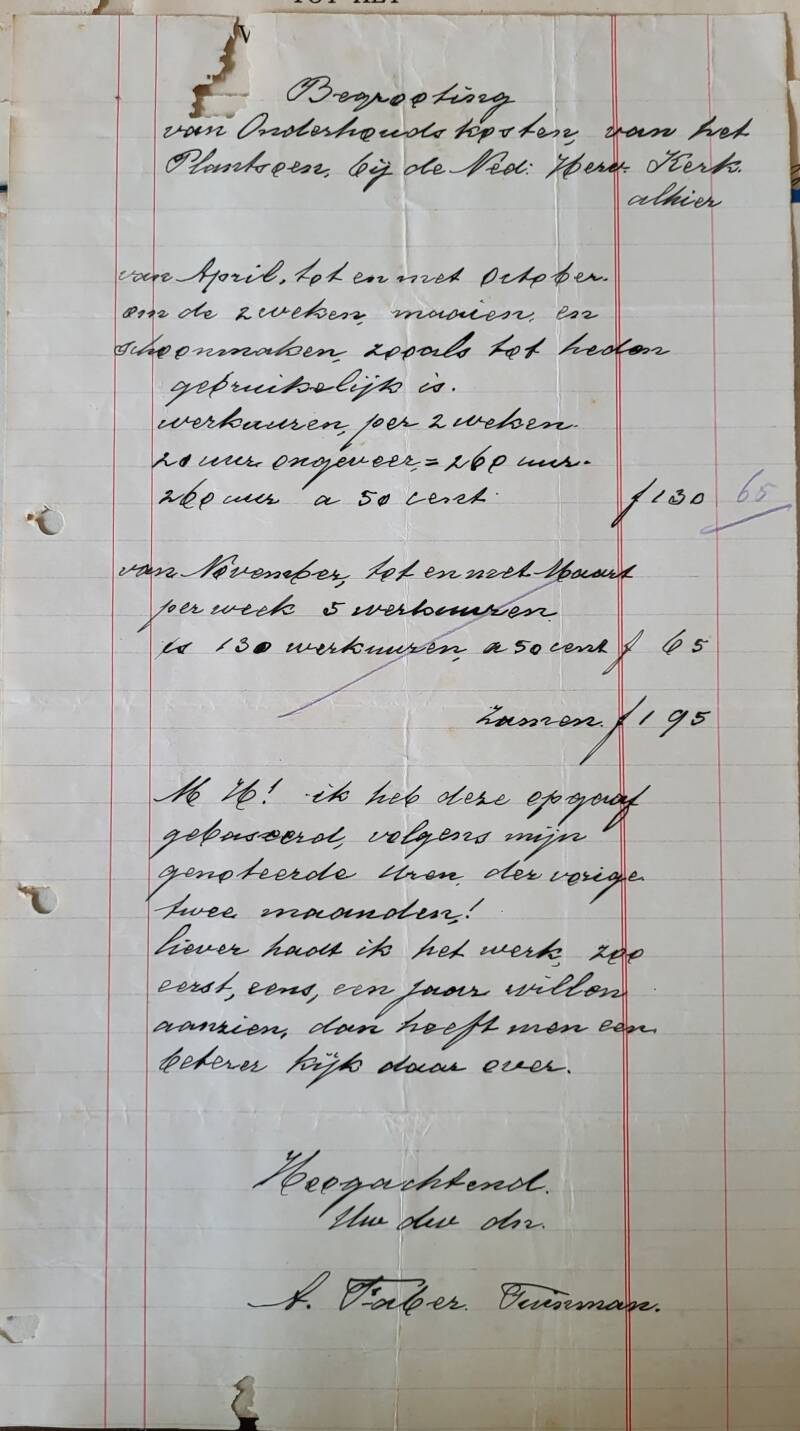 TOT HET
V
Begrooting
van Onderhouds kosten, van het
Plantsoen, bij de Ned: Herv. Kerk.
alhier
van April, tot en met October.
om de 2 weken, maaien, en
schoonmaken, zooals tot heden
gebruikelijk is.
werkuuren, per 2 weken.
20 uur ongeveer, = 260 uur.
260 uur a 50 cent. f 130 65
van November, tot en met Maart
per week 5 werkuuren
is 130 werkuuren, a 50 cent f 65
Zamen. f 195
M H! ik heb deze opgaaf
gebaseerd, volgens mijn
genoteerde Uren, der vorige
twee maanden,!
liever hadt ik het werk, zoo
eerst, eens, een jaar willen
aanzien, dan heeft men een
beterer kijk daar over.
Hoogachtend.
Uw dw dn.
A. Faber. Tuinman.